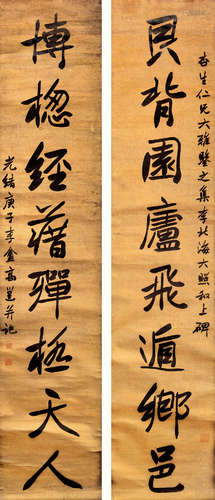 杏生仁兄大雅鉴之集李北海大照和上碑
貝背園廬飛遁鄉邑
博楤經藉殫極天人
光绪庚子李金高並并记